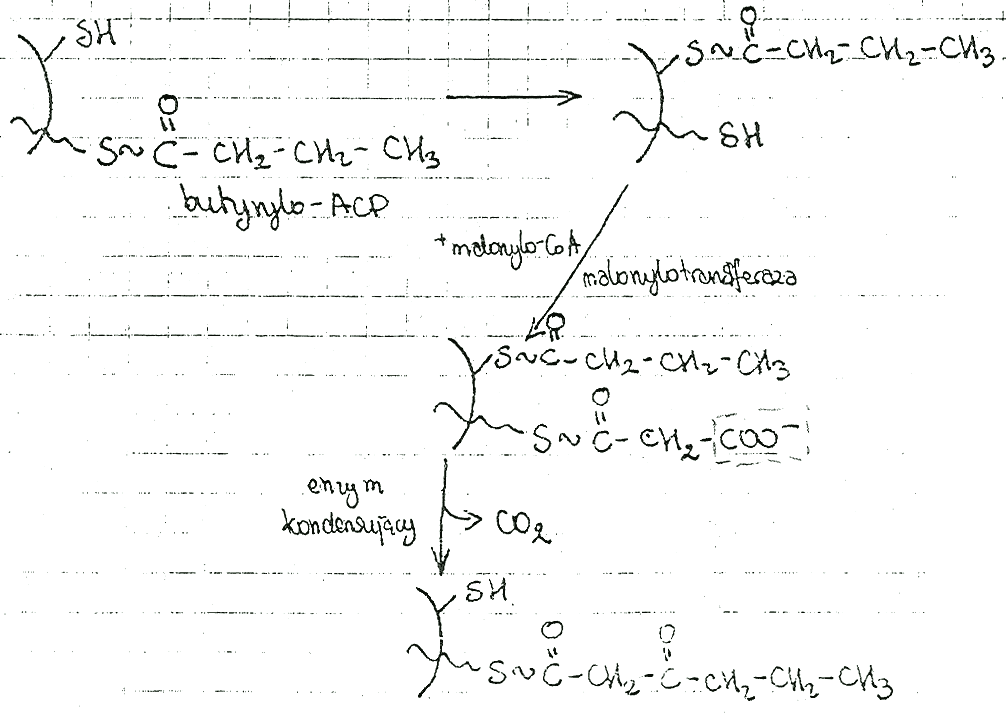 SH
S~C(=O)-CH₂-CH₂-CH₃
butyrylo-ACP
S~C(=O)-CH₂-CH₂-CH₃
SH
+malonylo-CoA
malonylotransferaza
S~C(=O)-CH₂-CH₂-CH₃
S~C(=O)-CH₂-COO⁻
enzym
kondensujący
CO₂
SH
S~C(=O)-CH₂-C(=O)-CH₂-CH₂-CH₃